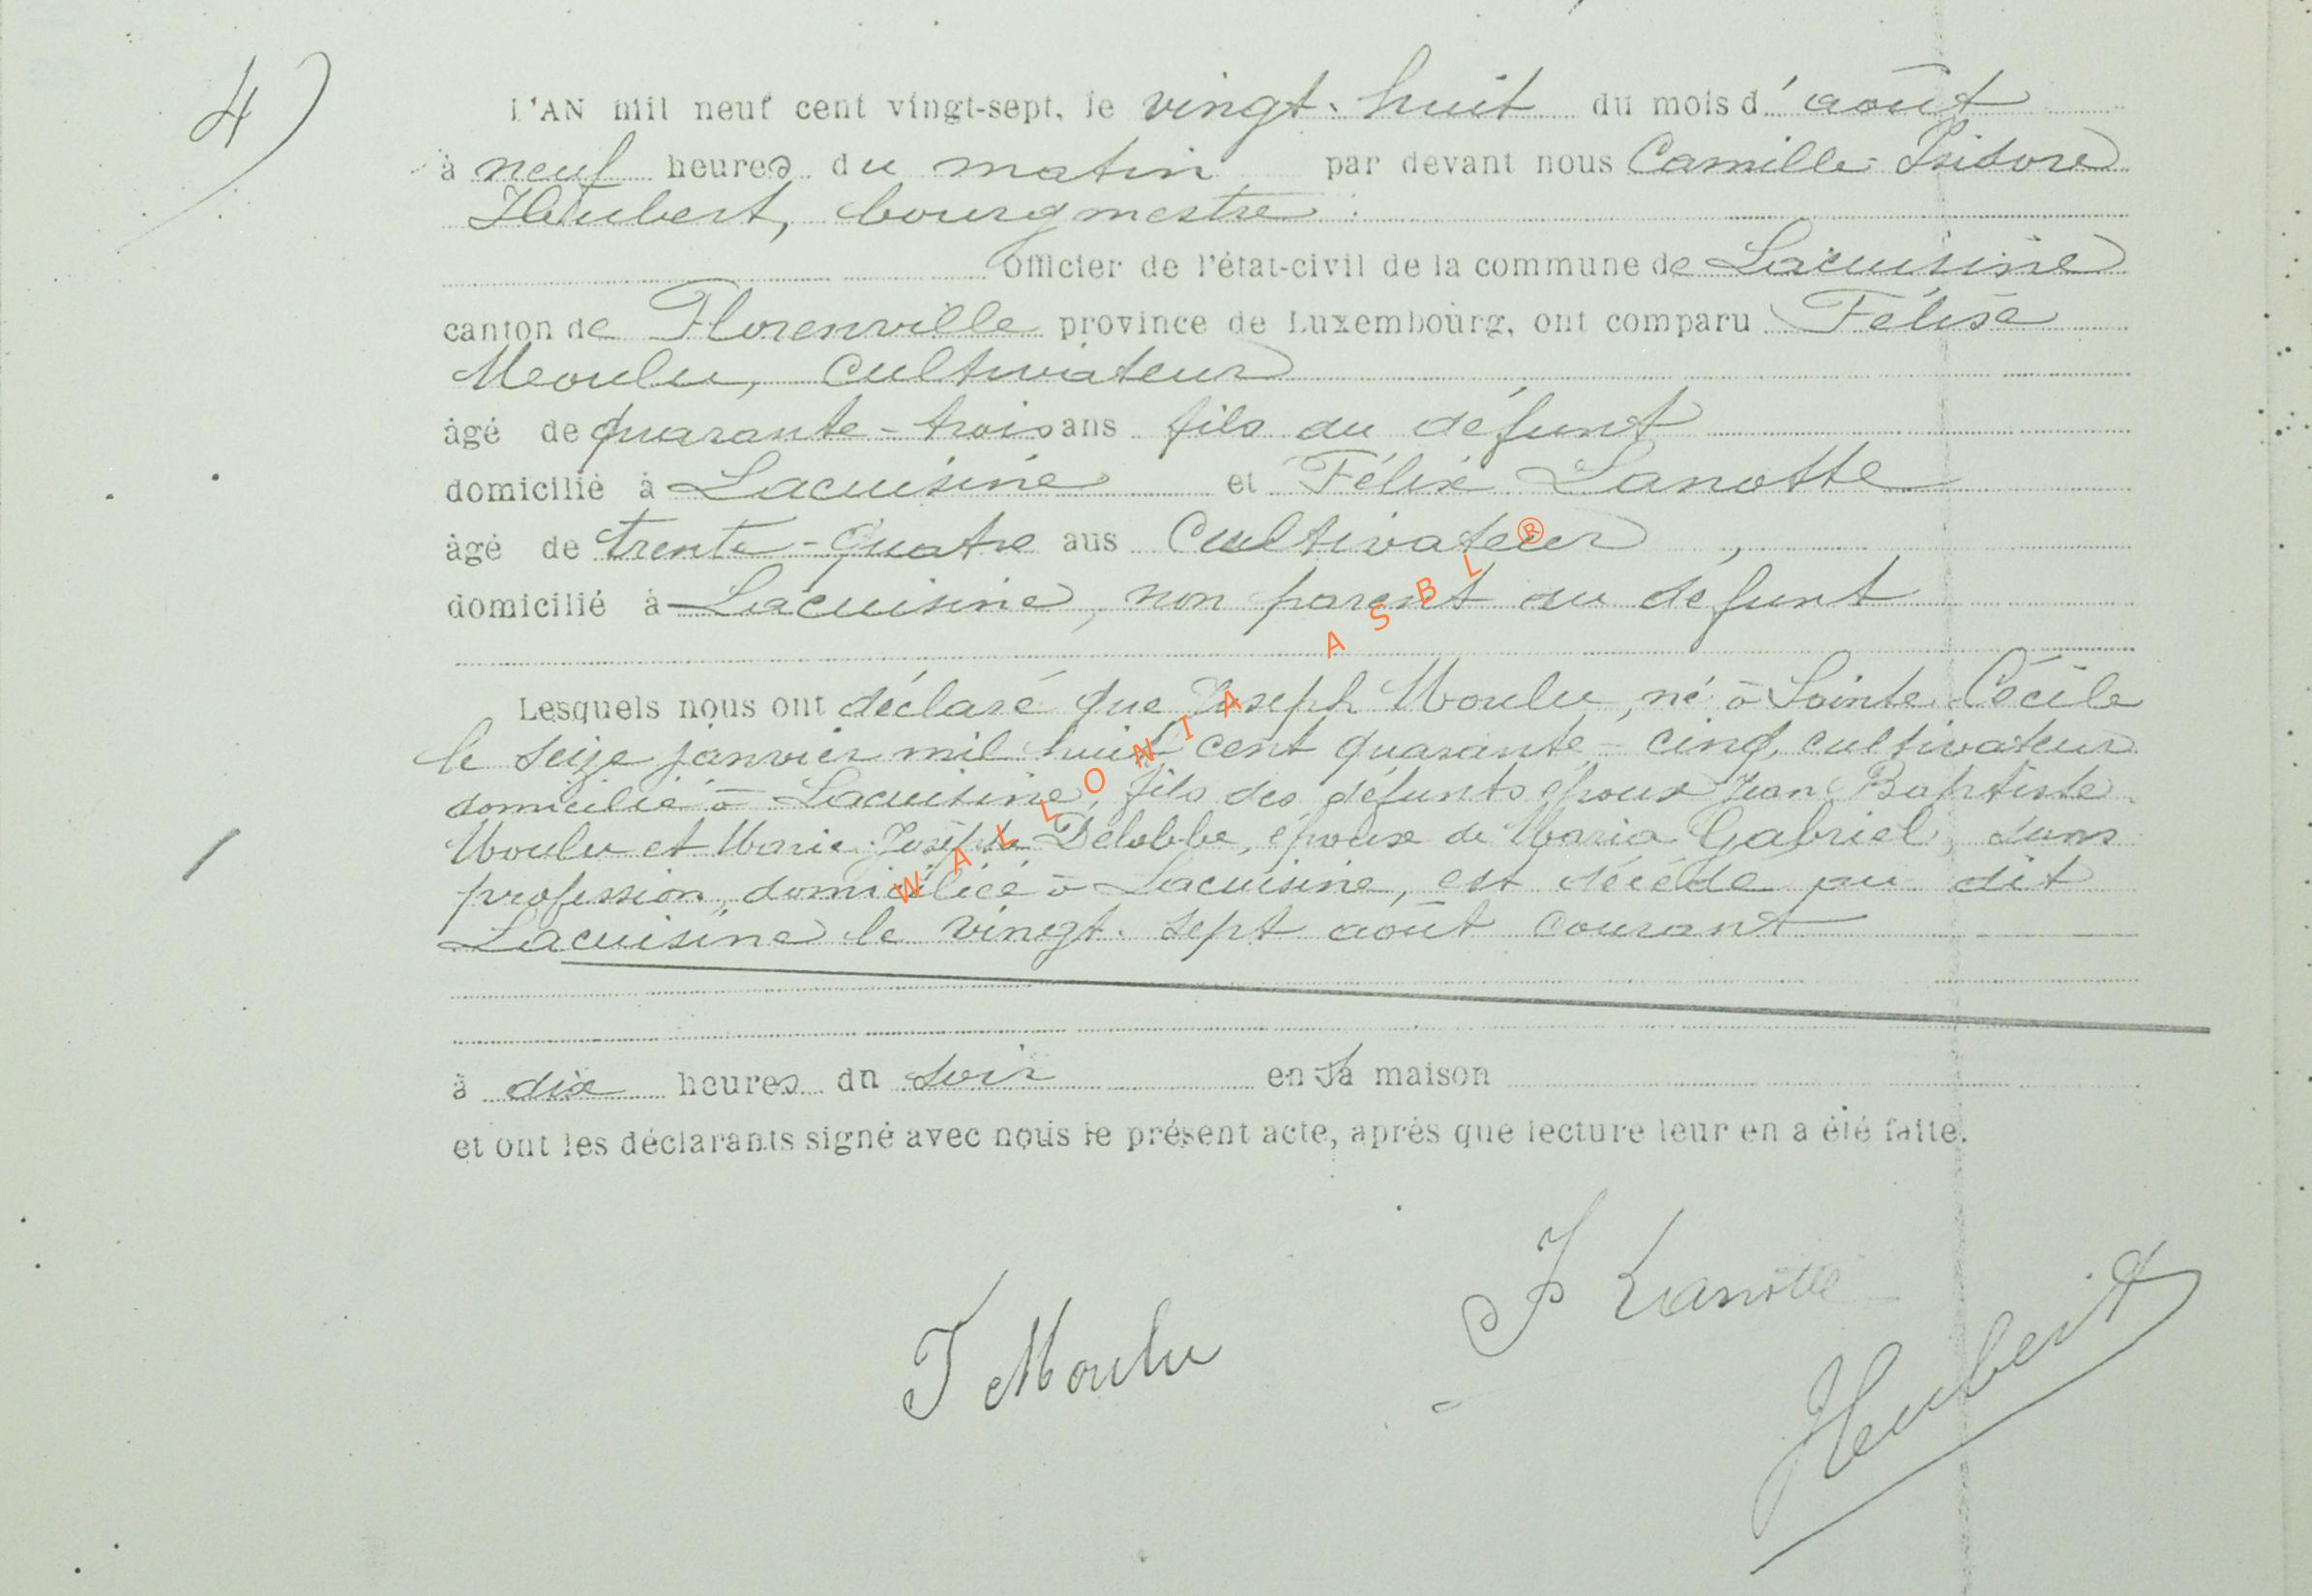 4)
L'AN mil neuf cent vingt-sept, le vingt-huit du mois d'août
à neuf heures du matin par devant nous Camille Isidore
Heubert, bourgmestre
Officier de l'état-civil de la commune de Lacuisine
canton de Florenville province de Luxembourg, ont comparu Félix
Moulu, cultivateur
âgé de quarante-trois ans fils du défunt
domicilié à Lacuisine et Félix Lanotte
âgé de trente-quatre ans cultivateur,
domicilié à Lacuisine, non parent au défunt
Lesquels nous ont déclaré que Joseph Moulu, né à Sainte Cécile
le seize janvier mil huit cent quarante-cinq, cultivateur
domicilié à Lacuisine, fils des défunts époux Jean Baptiste
Moulu et Marie Josèphe Delobbe, époux de Maria Gabriel, sans
profession, domiciliée à Lacuisine, est décédé au dit
Lacuisine le vingt-sept août courant
à dix heures du soir en sa maison
et ont les déclarants signé avec nous le présent acte, après que lecture leur en a été faite.
F Lanotte
F Moulu
Heubert
WALLONIA ASBL ®